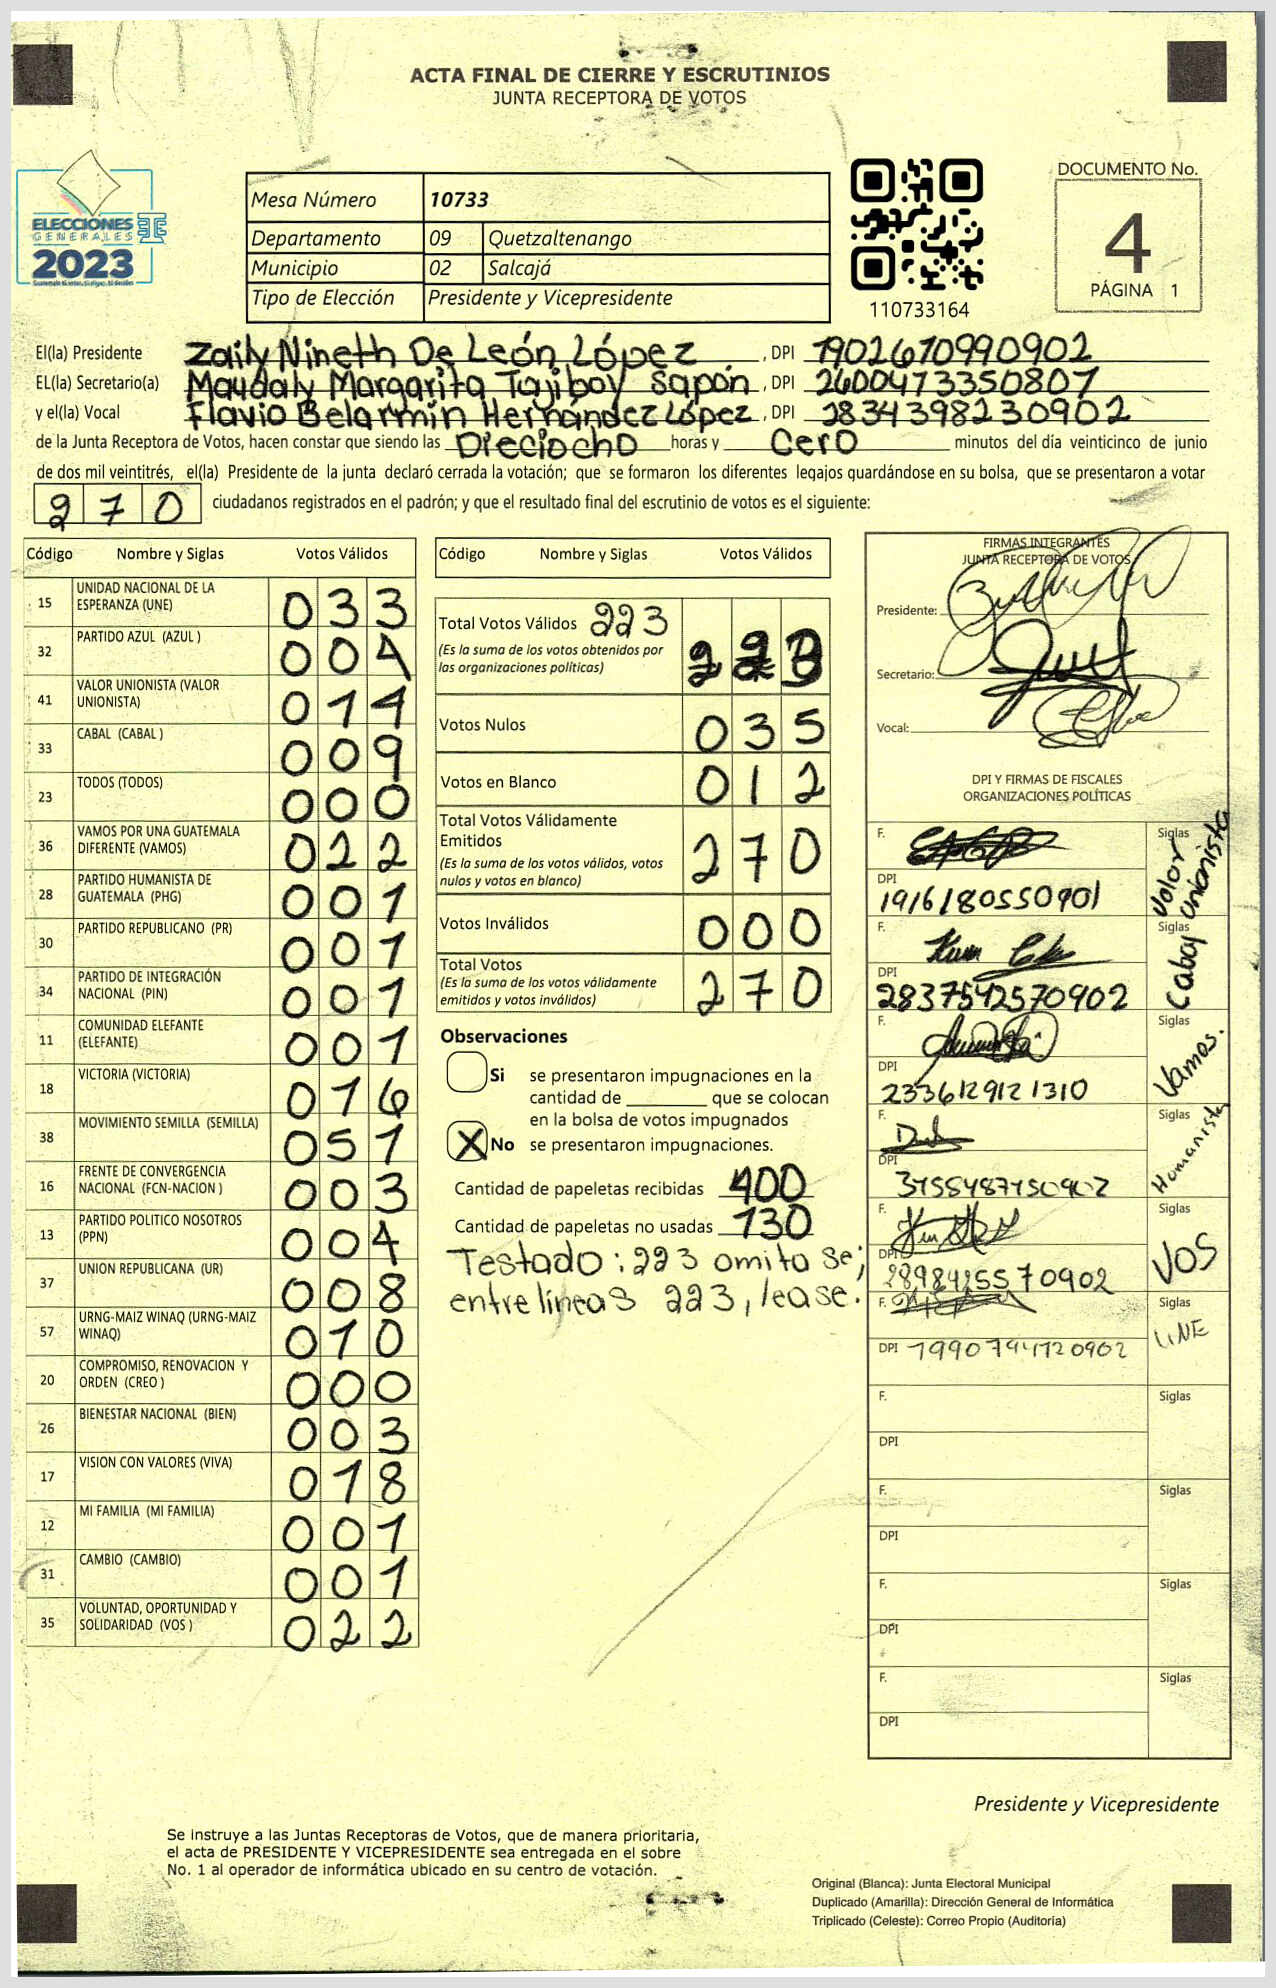 ACTA FINAL DE CIERRE Y ESCRUTINIOS
JUNTA RECEPTORA DE VOTOS
ELECCIONES
GENERALES
2023
Mesa Número 10733
Departamento 09 Quetzaltenango
Municipio 02 Salcajá
Tipo de Elección Presidente y Vicepresidente
110733164
DOCUMENTO No.
4
PÁGINA 1
El(la) Presidente Zaily Nineth De León López, DPI 1902670990902
EL(la) Secretario(a) Maudaly Margarita Tajiboy Sapón, DPI 2600473350807
y el(la) Vocal Flavio Belarmin Hernández López, DPI 2834398230902
de la Junta Receptora de Votos, hacen constar que siendo las Dieciocho horas y Cero minutos del día veinticinco de junio
de dos mil veintitrés, el(la) Presidente de la junta declaró cerrada la votación; que se formaron los diferentes legajos guardándose en su bolsa, que se presentaron a votar
270 ciudadanos registrados en el padrón; y que el resultado final del escrutinio de votos es el siguiente:
Código Nombre y Siglas Votos Válidos
15 UNIDAD NACIONAL DE LA ESPERANZA (UNE) 033
32 PARTIDO AZUL (AZUL ) 004
41 VALOR UNIONISTA (VALOR UNIONISTA) 014
33 CABAL (CABAL ) 009
23 TODOS (TODOS) 000
36 VAMOS POR UNA GUATEMALA DIFERENTE (VAMOS) 022
28 PARTIDO HUMANISTA DE GUATEMALA (PHG) 001
30 PARTIDO REPUBLICANO (PR) 001
34 PARTIDO DE INTEGRACIÓN NACIONAL (PIN) 001
11 COMUNIDAD ELEFANTE (ELEFANTE) 001
18 VICTORIA (VICTORIA) 016
38 MOVIMIENTO SEMILLA (SEMILLA) 051
16 FRENTE DE CONVERGENCIA NACIONAL (FCN-NACION ) 003
13 PARTIDO POLITICO NOSOTROS (PPN) 004
37 UNION REPUBLICANA (UR) 008
57 URNG-MAIZ WINAQ (URNG-MAIZ WINAQ) 010
20 COMPROMISO, RENOVACION Y ORDEN (CREO ) 000
26 BIENESTAR NACIONAL (BIEN) 003
17 VISION CON VALORES (VIVA) 018
12 MI FAMILIA (MI FAMILIA) 001
31 CAMBIO (CAMBIO) 001
35 VOLUNTAD, OPORTUNIDAD Y SOLIDARIDAD (VOS ) 022
Código Nombre y Siglas Votos Válidos
Total Votos Válidos 223 223
(Es la suma de los votos obtenidos por
las organizaciones políticas)
Votos Nulos 035
Votos en Blanco 012
Total Votos Válidamente
Emitidos 270
(Es la suma de los votos válidos, votos
nulos y votos en blanco)
Votos Inválidos 000
Total Votos 270
(Es la suma de los votos válidamente
emitidos y votos inválidos)
Observaciones
Si se presentaron impugnaciones en la
cantidad de ________ que se colocan
en la bolsa de votos impugnados
X No se presentaron impugnaciones.
Cantidad de papeletas recibidas 400
Cantidad de papeletas no usadas 130
Testado: 223 omitase;
entre líneas 223, lease.
FIRMAS INTEGRANTES
JUNTA RECEPTORA DE VOTOS
Presidente:
Secretario:
Vocal:
DPI Y FIRMAS DE FISCALES
ORGANIZACIONES POLÍTICAS
F. Siglas Valor Unionista
DPI 1916180550901
F. Siglas Cabal
DPI 2837542570902
F. Siglas Vamos.
DPI 2336129121310
F. Siglas Humanista
DPI
F. Siglas VOS
DPI 2898425570902
F. Siglas UNE
DPI
F. Siglas
DPI
F. Siglas
DPI
F. Siglas
DPI
F. Siglas
DPI
Presidente y Vicepresidente
Se instruye a las Juntas Receptoras de Votos, que de manera prioritaria,
el acta de PRESIDENTE Y VICEPRESIDENTE sea entregada en el sobre
No. 1 al operador de informática ubicado en su centro de votación.
Original (Blanca): Junta Electoral Municipal
Duplicado (Amarilla): Dirección General de Informática
Triplicado (Celeste): Correo Propio (Auditoría)